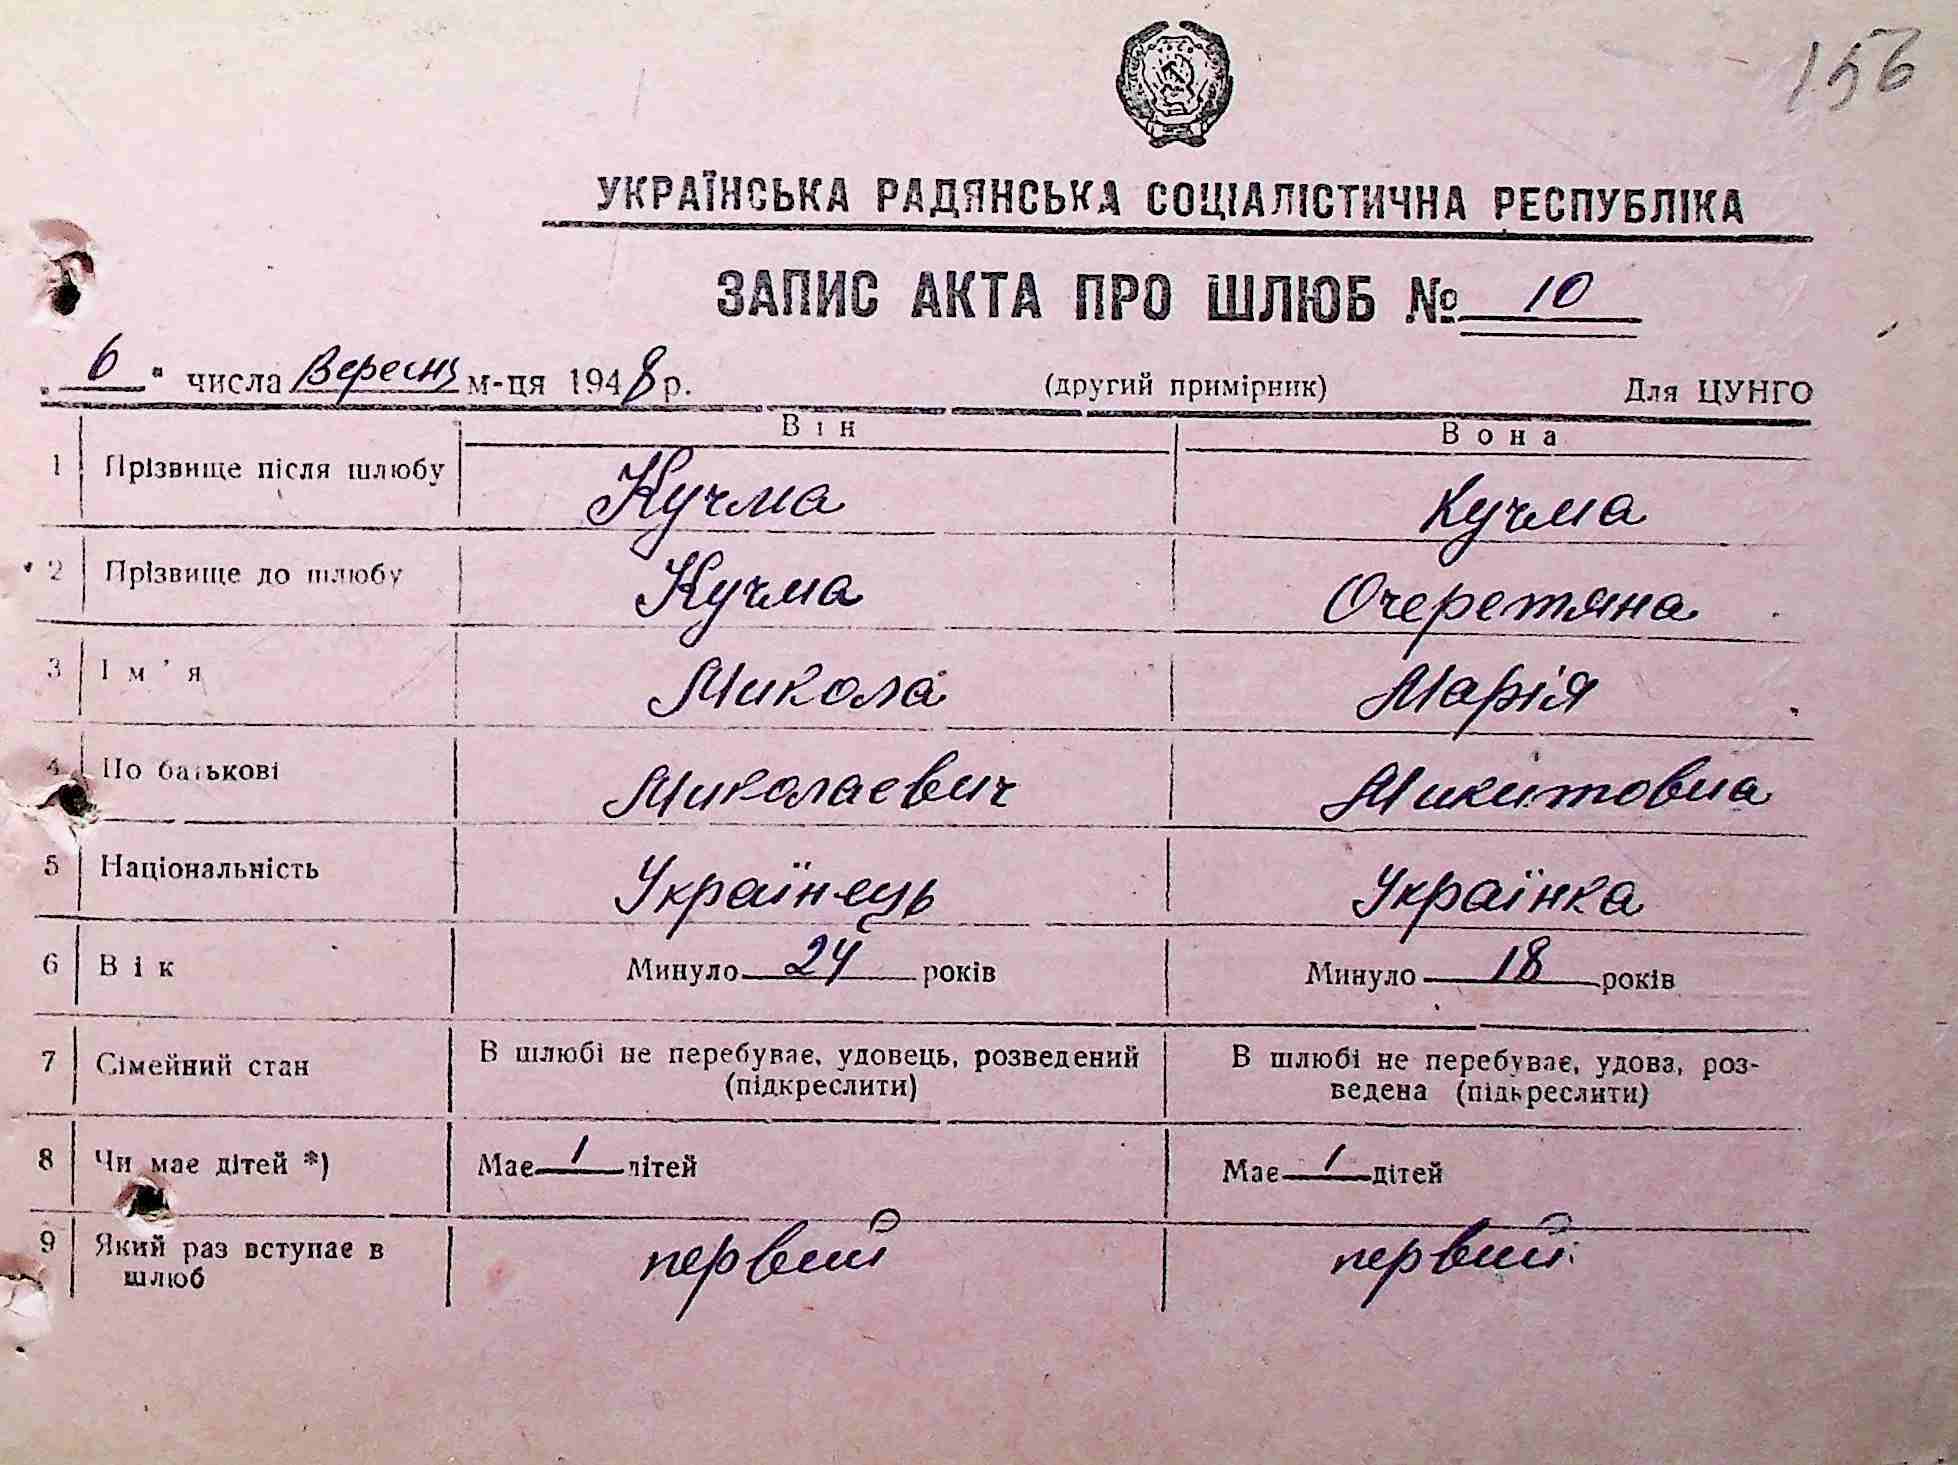 156
УКРАЇНСЬКА РАДЯНСЬКА СОЦІАЛІСТИЧНА РЕСПУБЛІКА
ЗАПИС АКТА ПРО ШЛЮБ № 10
„6“ числа Вересня м-ця 1948 р. (другий примірник) Для ЦУНГО
Він Вона
1 Прізвище після шлюбу Кучма Кучма
2 Прізвище до шлюбу Кучма Очеретяна
3 Ім'я Микола Марія
4 По батькові Миколаевич Микитовна
5 Національність Українець Українка
6 Вік Минуло 24 років Минуло 18 років
7 Сімейний стан В шлюбі не перебуває, удовець, розведений В шлюбі не перебуває, удова, роз-
(підкреслити) ведена (підкреслити)
8 Чи має дітей *) Має 1 дітей Має 1 дітей
9 Який раз вступає в первий первий
шлюб